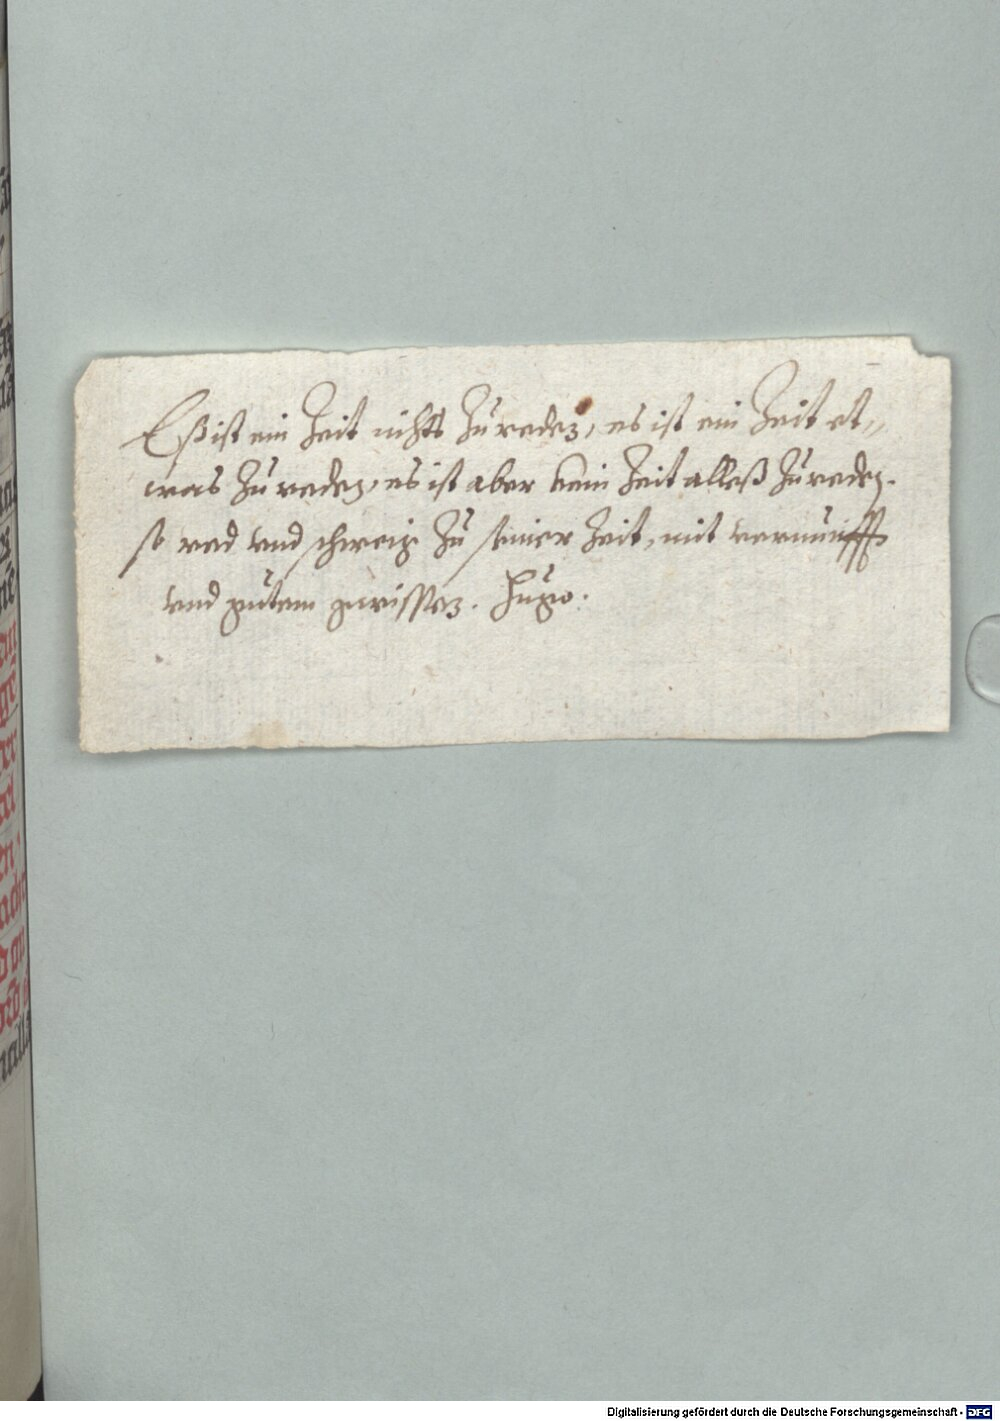 Eß ist ein Zeit nichts Zu reden, es ist ein Zeit et„
was Zu reden, es ist aber kain Zeit alleß Zu reden.
so red vnd schweig Zu seiner Zeit, mit vernunfft
vnd gutem gewissen. Hugo.
Digitalisierung gefördert durch die Deutsche Forschungsgemeinschaft - DFG